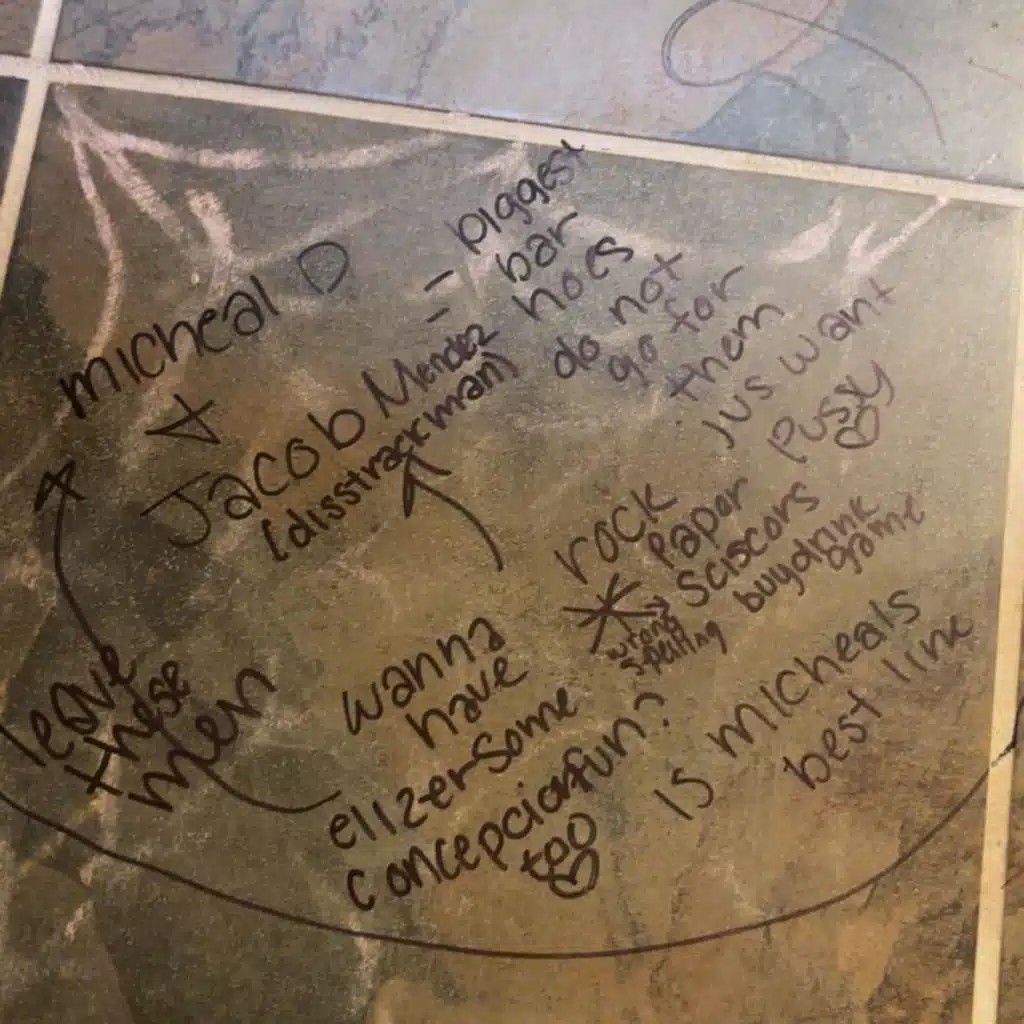 micheal D
+
Jacob Mendez
(disstrackman)
= biggest
bar
hoes
do not
go for
them
jus want
pussy
rock
papor
sciscors
wrong
spelling
buydrink
game
is micheals
best line
wanna
have
some
fun?
elizer
concepcion
too
leave
these
men